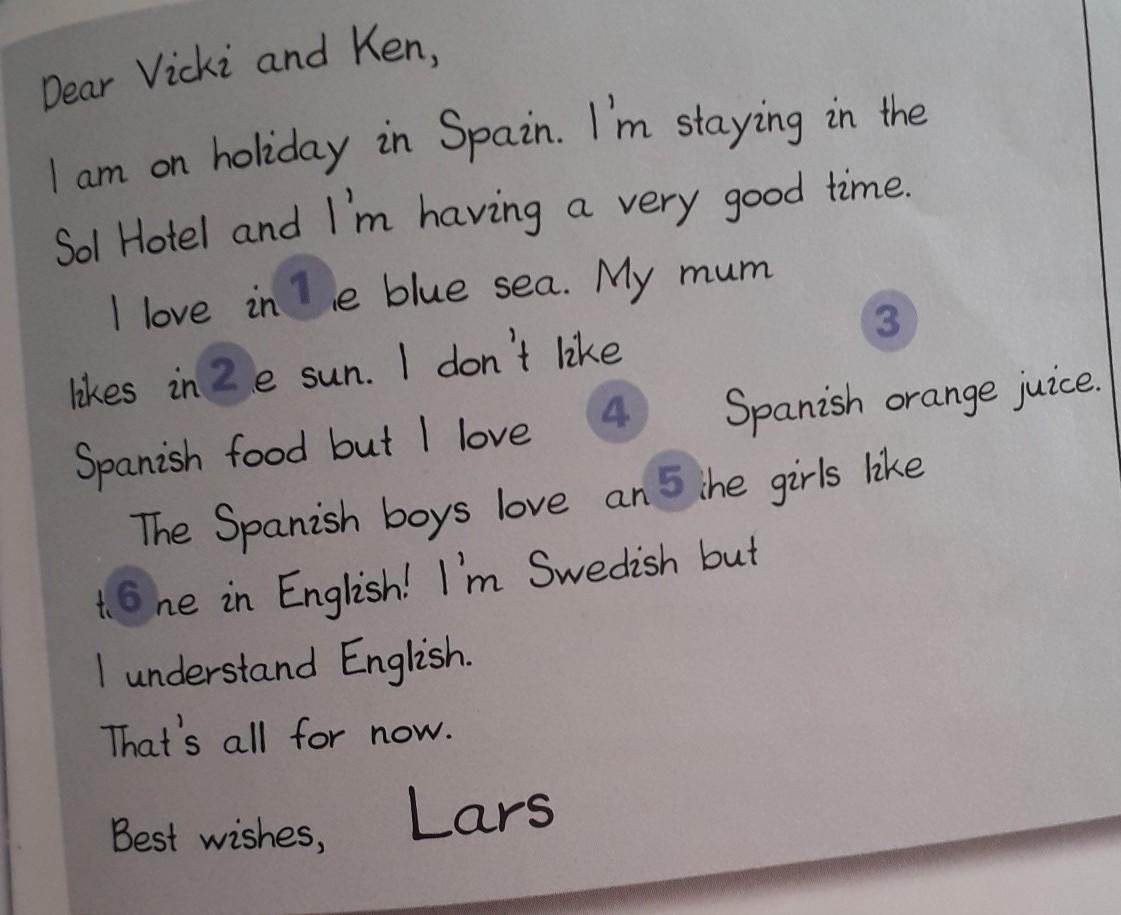 Dear Vicki and Ken,
I am on holiday in Spain. I'm staying in the
Sol Hotel and I'm having a very good time.
I love in 1 e blue sea. My mum
3
likes in 2 e sun. I don't like
4 Spanish orange juice.
Spanish food but I love
The Spanish boys love an 5 the girls like
t 6 ne in English! I'm Swedish but
I understand English.
That's all for now.
Best wishes, Lars